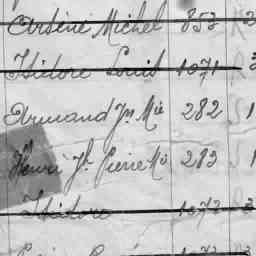 Arsène Michel 853 2
Isidore Louis 1071 3
Armand Jn Mie 282 1
Henri Jh Pierre Mie 283 1
Isidore 1072 3
1073 3